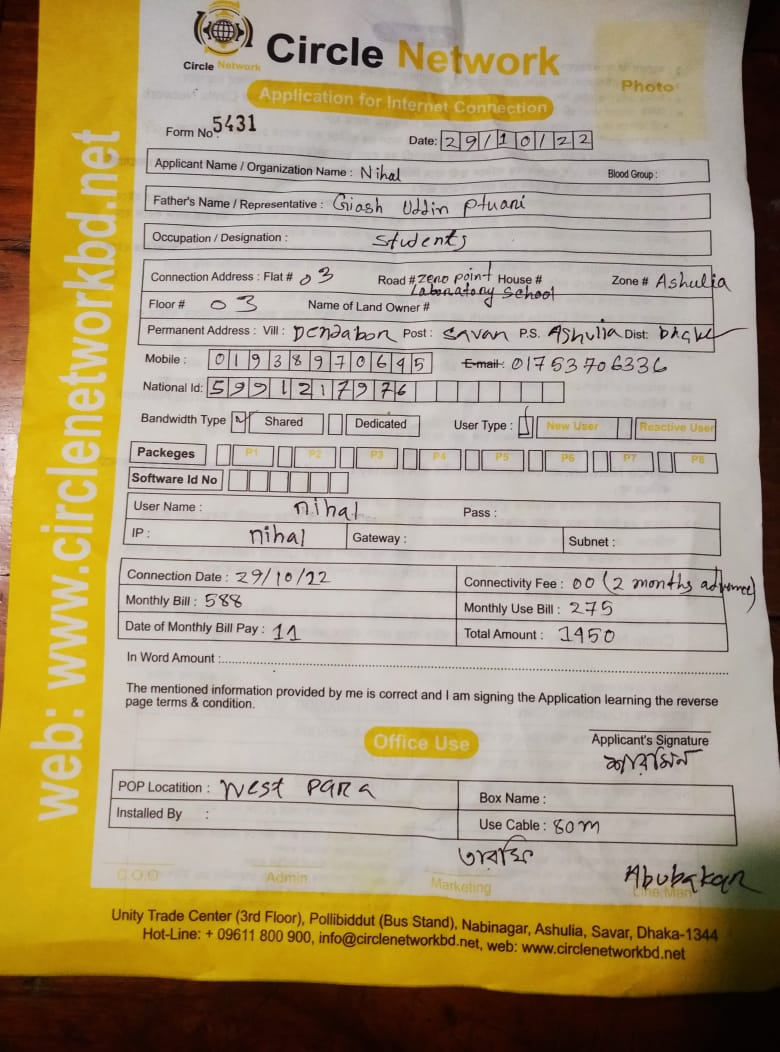 Circle Network
Circle Network
Photo
Application for Internet Connection
Form No 5431
Date: 29/10/22
Applicant Name / Organization Name : Nihal Blood Group :
Father's Name / Representative : Giash Uddin Ptuani
Occupation / Designation : Students
Connection Address : Flat # 03 Road # Zero point House # Zone # Ashulia
Laboratory School
Floor # 03 Name of Land Owner #
Permanent Address : Vill : Dendabon Post : Savan P.S. Ashulia Dist:
Mobile : 01938970645 E-mail: 01753706336
National Id: 5991217976
Bandwidth Type Shared Dedicated User Type : New User Reactive User
Packeges P1 P2 P3 P4 P5 P6 P7 P8
Software Id No
User Name : nihal Pass :
IP : nihal Gateway : Subnet :
Connection Date : 29/10/22 Connectivity Fee : 00 (2 months advance)
Monthly Bill : 588 Monthly Use Bill : 275
Date of Monthly Bill Pay : 11 Total Amount : 1450
In Word Amount :
The mentioned information provided by me is correct and I am signing the Application learning the reverse
page terms & condition.
Office Use
Applicant's Signature
POP Locatition : West para Box Name :
Installed By : Use Cable : 80m
Abubakar
C O O Admin Marketing Line Man
Unity Trade Center (3rd Floor), Pollibiddut (Bus Stand), Nabinagar, Ashulia, Savar, Dhaka-1344
Hot-Line: + 09611 800 900, info@circlenetworkbd.net, web: www.circlenetworkbd.net
web: www.circlenetworkbd.net